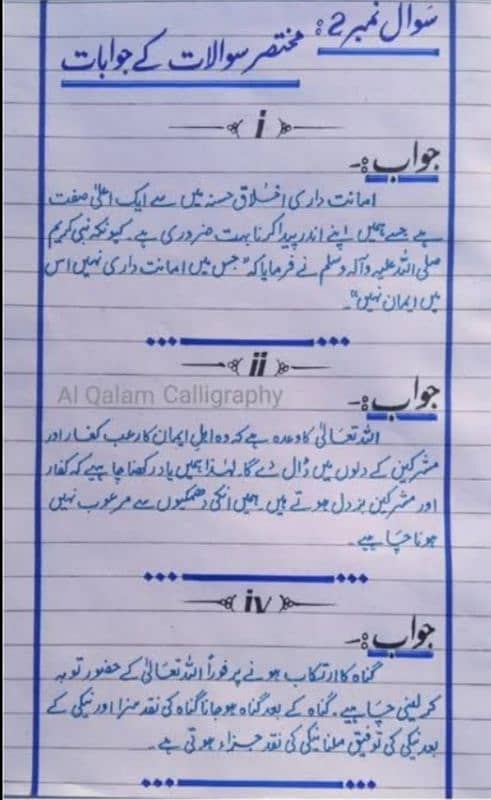 سوال نمبر 2:
مختصر سوالات کے جوابات
i
جواب:-
امانت داری اخلاق حسنہ میں سے ایک اعلیٰ صفت
ہے جسے ہمیں اپنے اندر پیدا کرنا بہت ضروری ہے۔ کیونکہ نبی کریم
صلی اللہ علیہ وآلہ وسلم نے فرمایا کہ "جس میں امانت داری نہیں اس
میں ایمان نہیں"۔
ii
Al Qalam Calligraphy
جواب:-
اللہ تعالیٰ کا وعدہ ہے کہ وہ اہلِ ایمان کا رعب کفار اور
مشرکین کے دلوں میں ڈال دے گا۔ لہٰذا ہمیں یاد رکھنا چاہیے کہ کفار
اور مشرکین بزدل ہوتے ہیں۔ ہمیں انکی دھمکیوں سے مرعوب نہیں
ہونا چاہیے۔
iv
جواب:-
گناہ کا ارتکاب ہونے پر فوراً اللہ تعالیٰ کے حضور توبہ
کر لینی چاہیے۔ گناہ کے بعد گناہ ہو جانا گناہ کی نقد سزا اور نیکی کے
بعد نیکی کی توفیق ملنا نیکی کی نقد جزاء ہوتی ہے۔